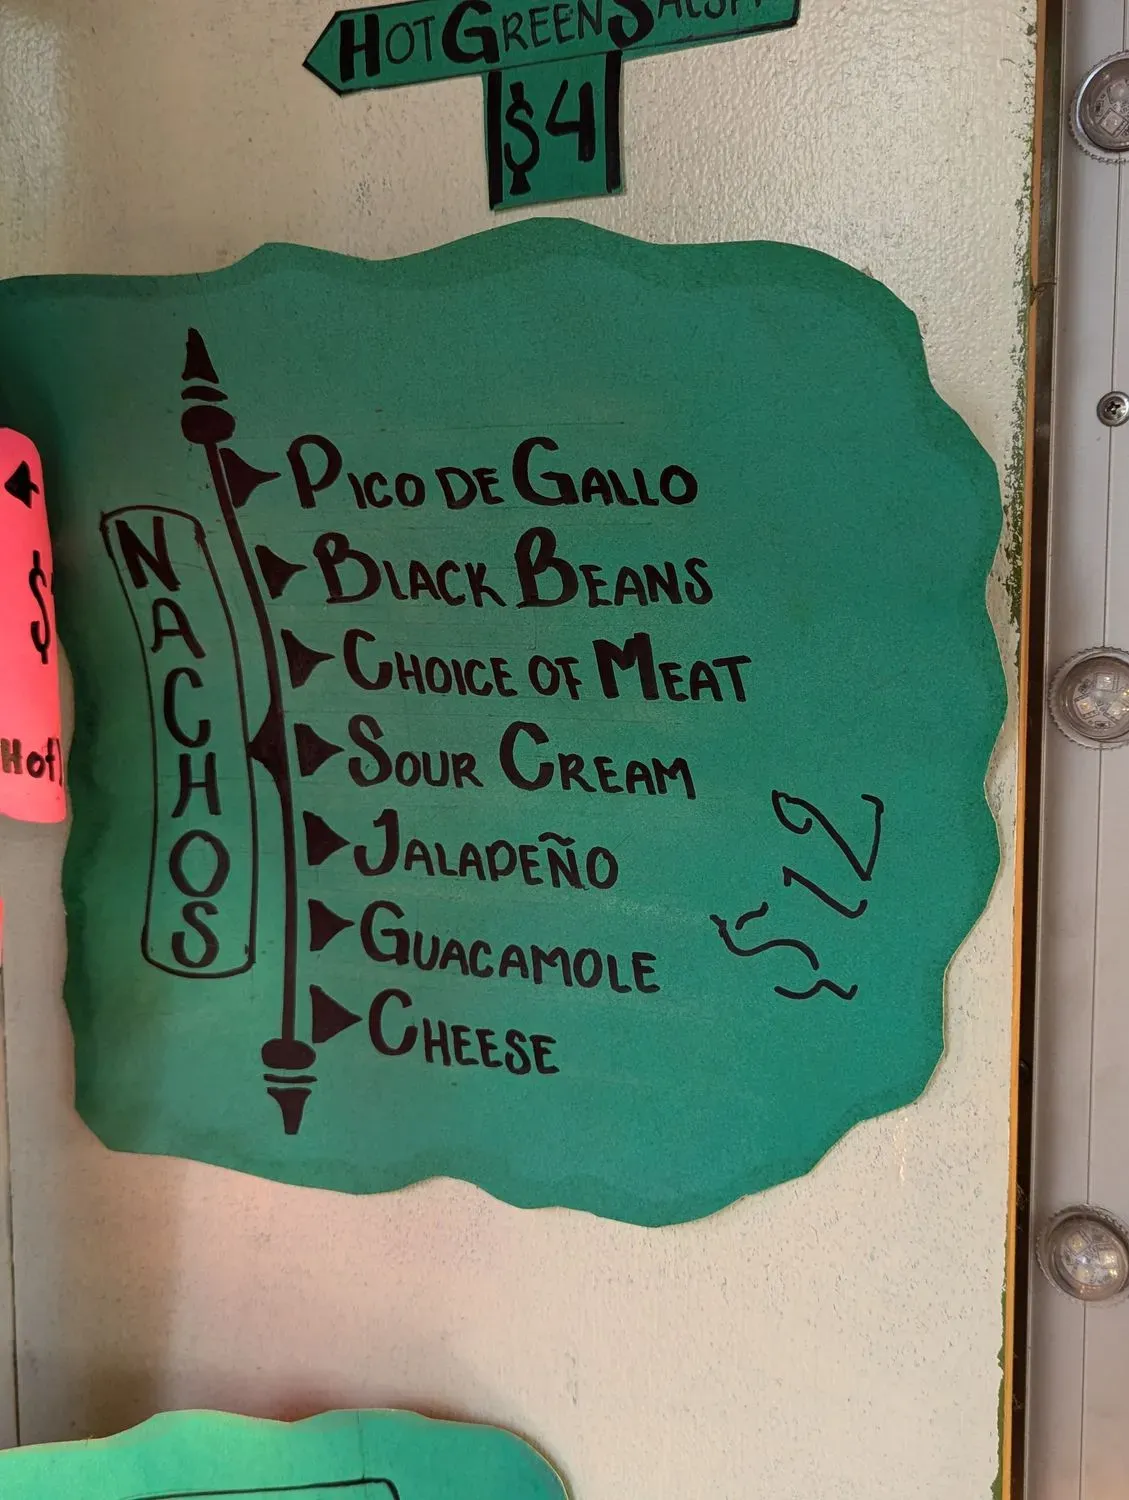 HOT GREEN SALSA
$4
NACHOS
PICO DE GALLO
BLACK BEANS
CHOICE OF MEAT
SOUR CREAM
JALAPEÑO
GUACAMOLE
CHEESE
$12
$
Hot)